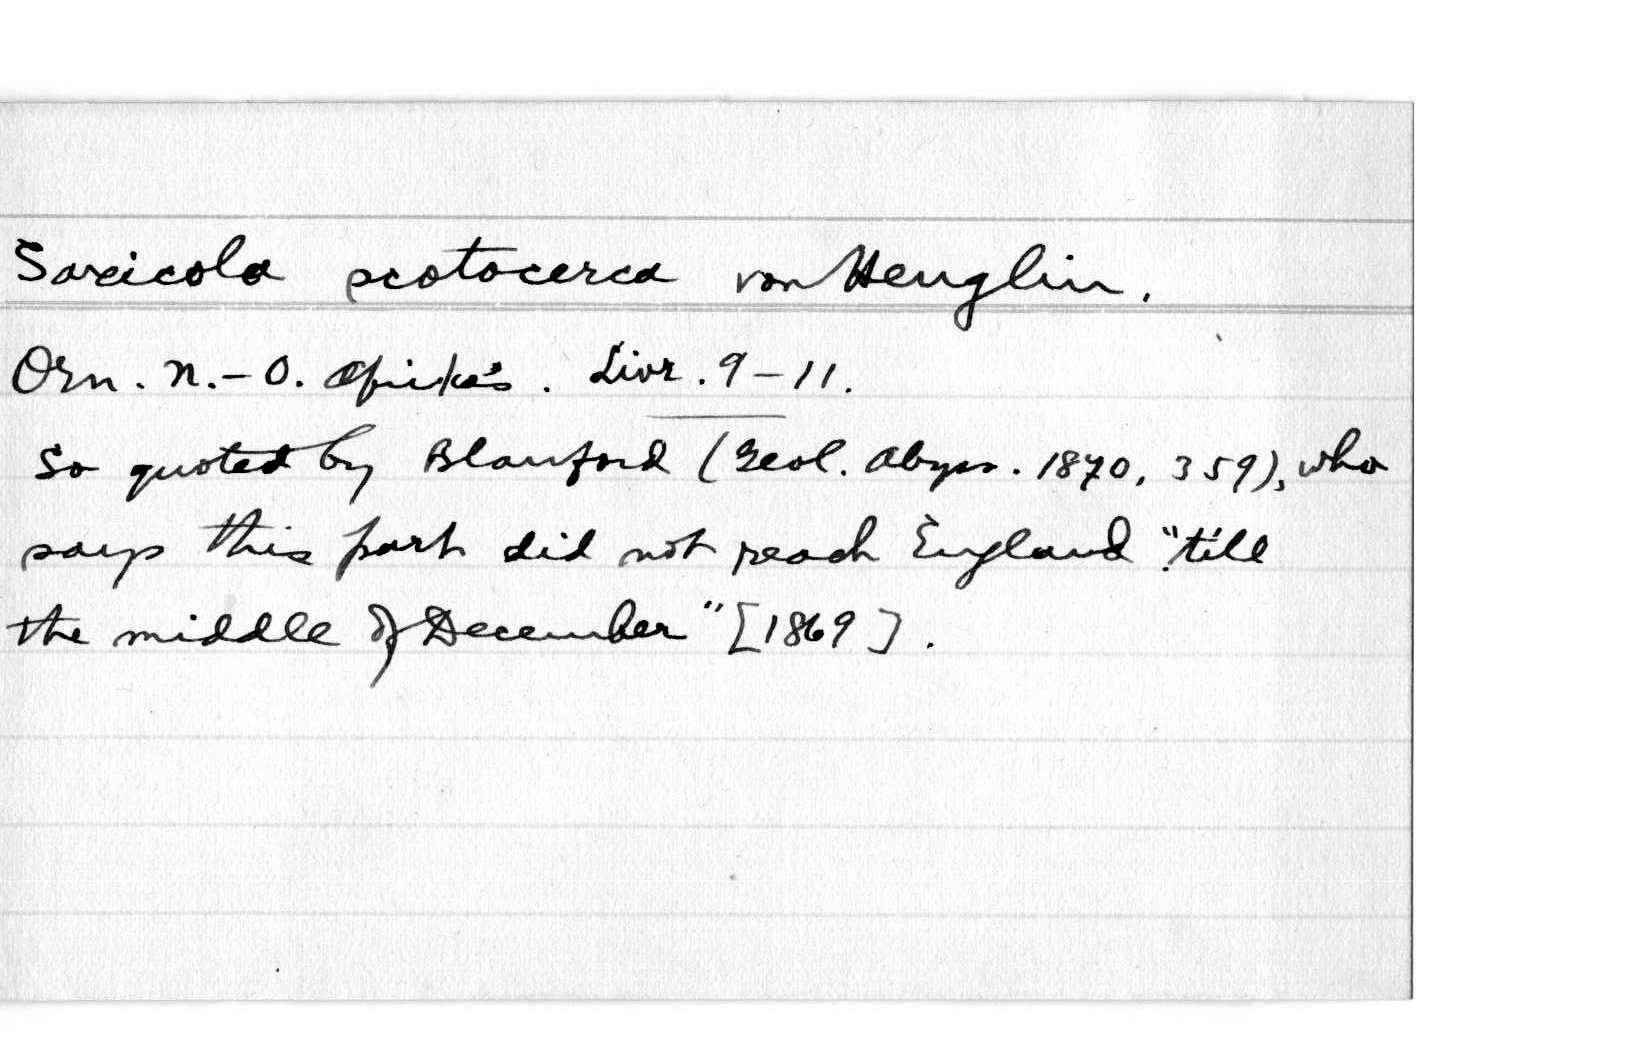 Saxicola scotocerca von Heuglin.
Orn. N.-O. Afrika's. Livr. 9-11.
So quoted by Blanford (Geol. Abyss. 1870, 359), who
says this part did not reach England "till
the middle of December" [1869].